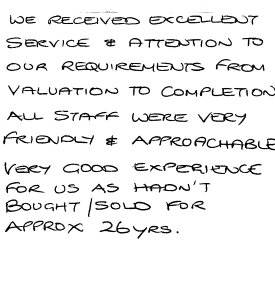 WE RECEIVED EXCELLENT
SERVICE & ATTENTION TO
OUR REQUIREMENTS FROM
VALUATION TO COMPLETION
ALL STAFF WERE VERY
FRIENDLY & APPROACHABLE
VERY GOOD EXPERIENCE
FOR US AS HADN'T
BOUGHT/SOLD FOR
APPROX 26YRS.